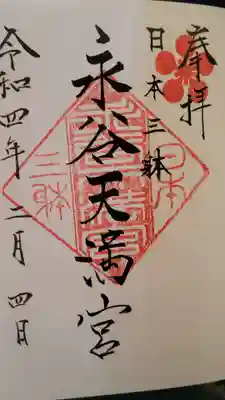 奉拝
日本三躰
永谷天満宮
令和四年 二月 四日
日本
三躰